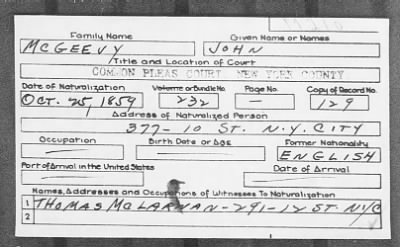 Family Name Given Name or Names
McGEEVY JOHN
Title and Location of Court
COMMON PLEAS COURT, NEW YORK COUNTY
Date of Naturalization Volume or Bundle No. Page No. Copy of Record No.
OCT. 25, 1859 232 — 129
Address of Naturalized Person
377-10 ST. N.Y. CITY
Occupation Birth Date or Age Former Nationality
ENGLISH
Port of Arrival in the United States Date of Arrival
Names, Addresses and Occupations of Witnesses To Naturalization
1 THOMAS McLARNAN-291-12 ST. NYC
2